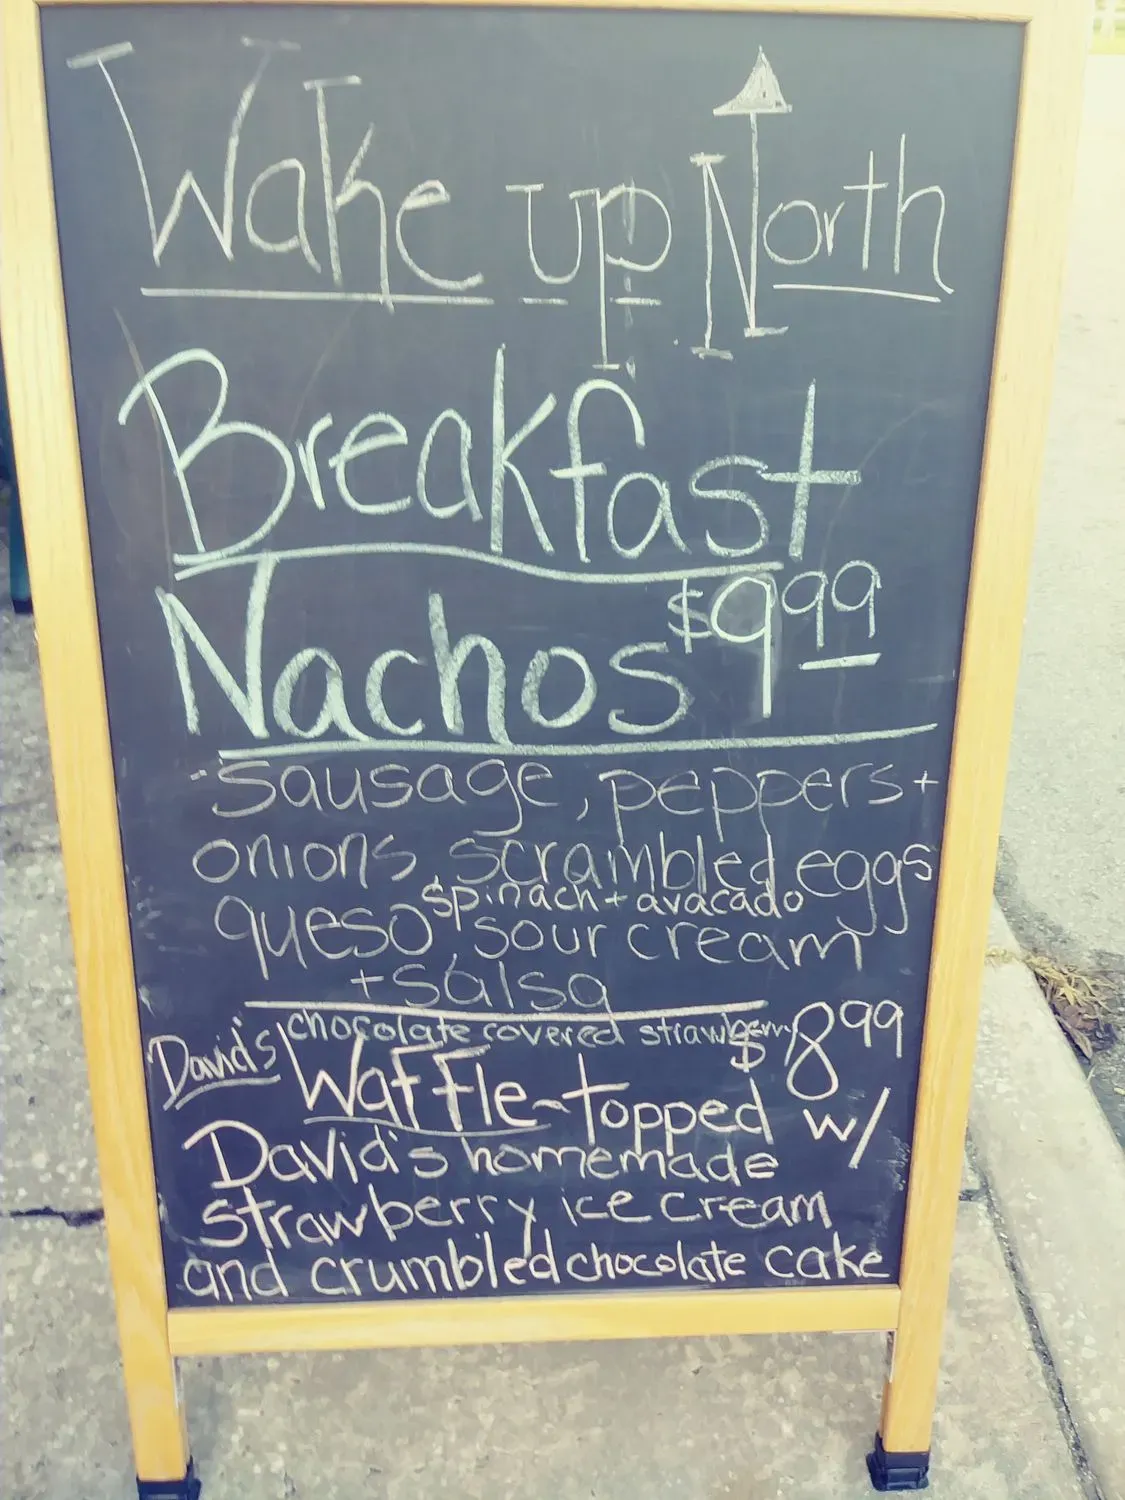 Wake up North
Breakfast
Nachos $9.99
-sausage, peppers +
onions scrambled eggs
spinach + avacado
queso, sour cream
+ salsa
chocolate covered strawberry
David's Waffle-topped w/ $8.99
David's homemade
strawberry ice cream
and crumbled chocolate cake